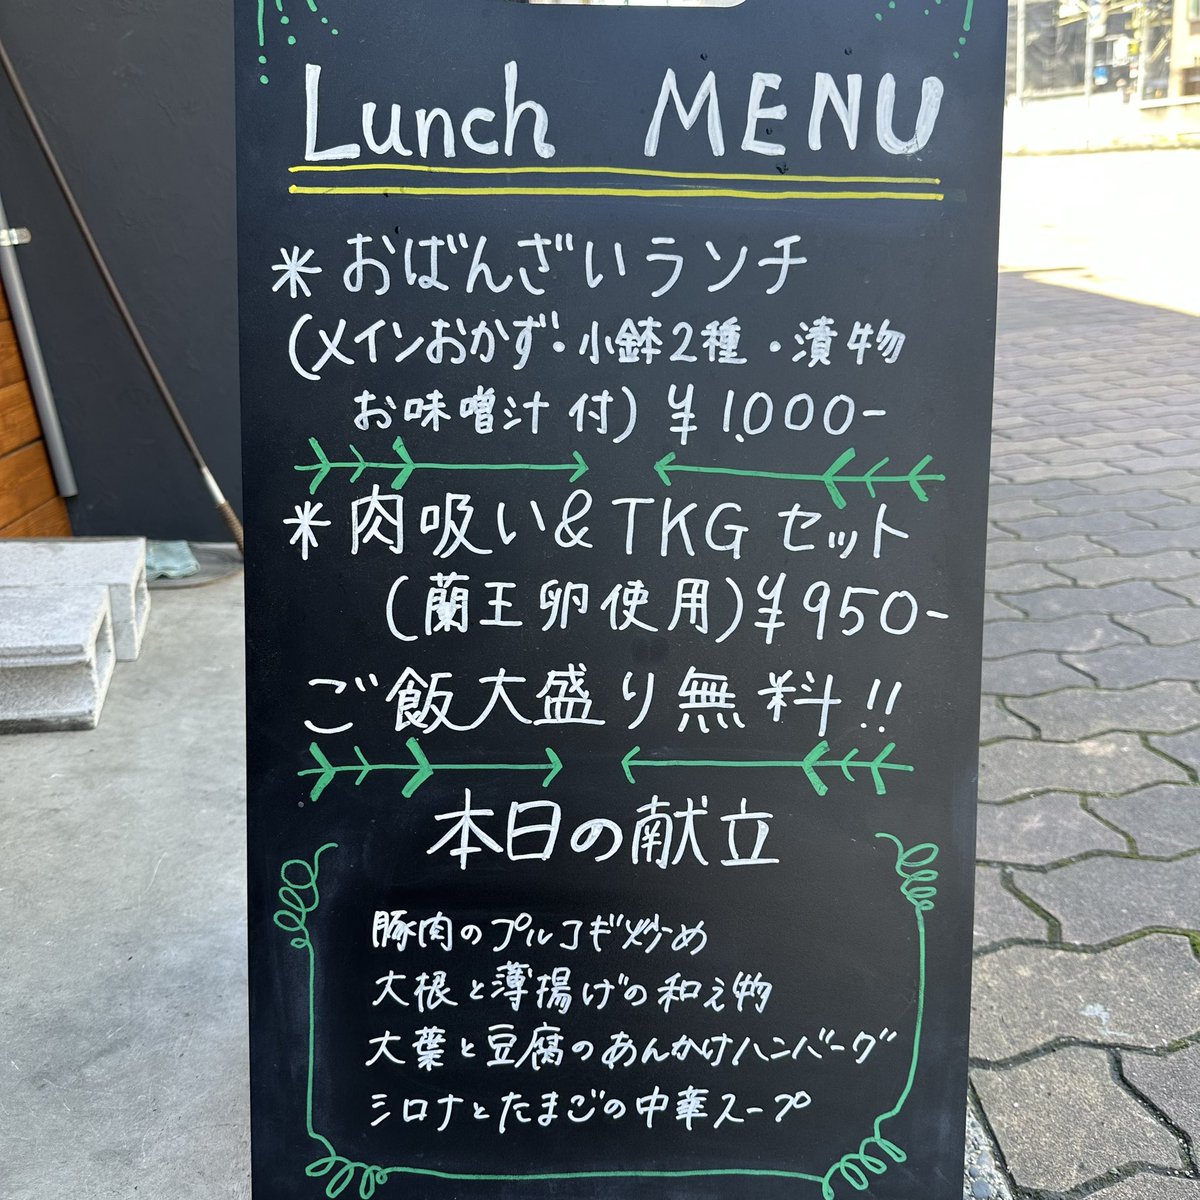 Lunch MENU
*おばんざいランチ
(メインおかず・小鉢2種・漬物
お味噌汁付) ¥1,000-
*肉吸い&TKGセット
(蘭王卵使用)¥950-
ご飯大盛り無料!!
本日の献立
豚肉のプルコギ炒め
大根と薄揚げの和え物
大葉と豆腐のあんかけハンバーグ
シロナとたまごの中華スープ